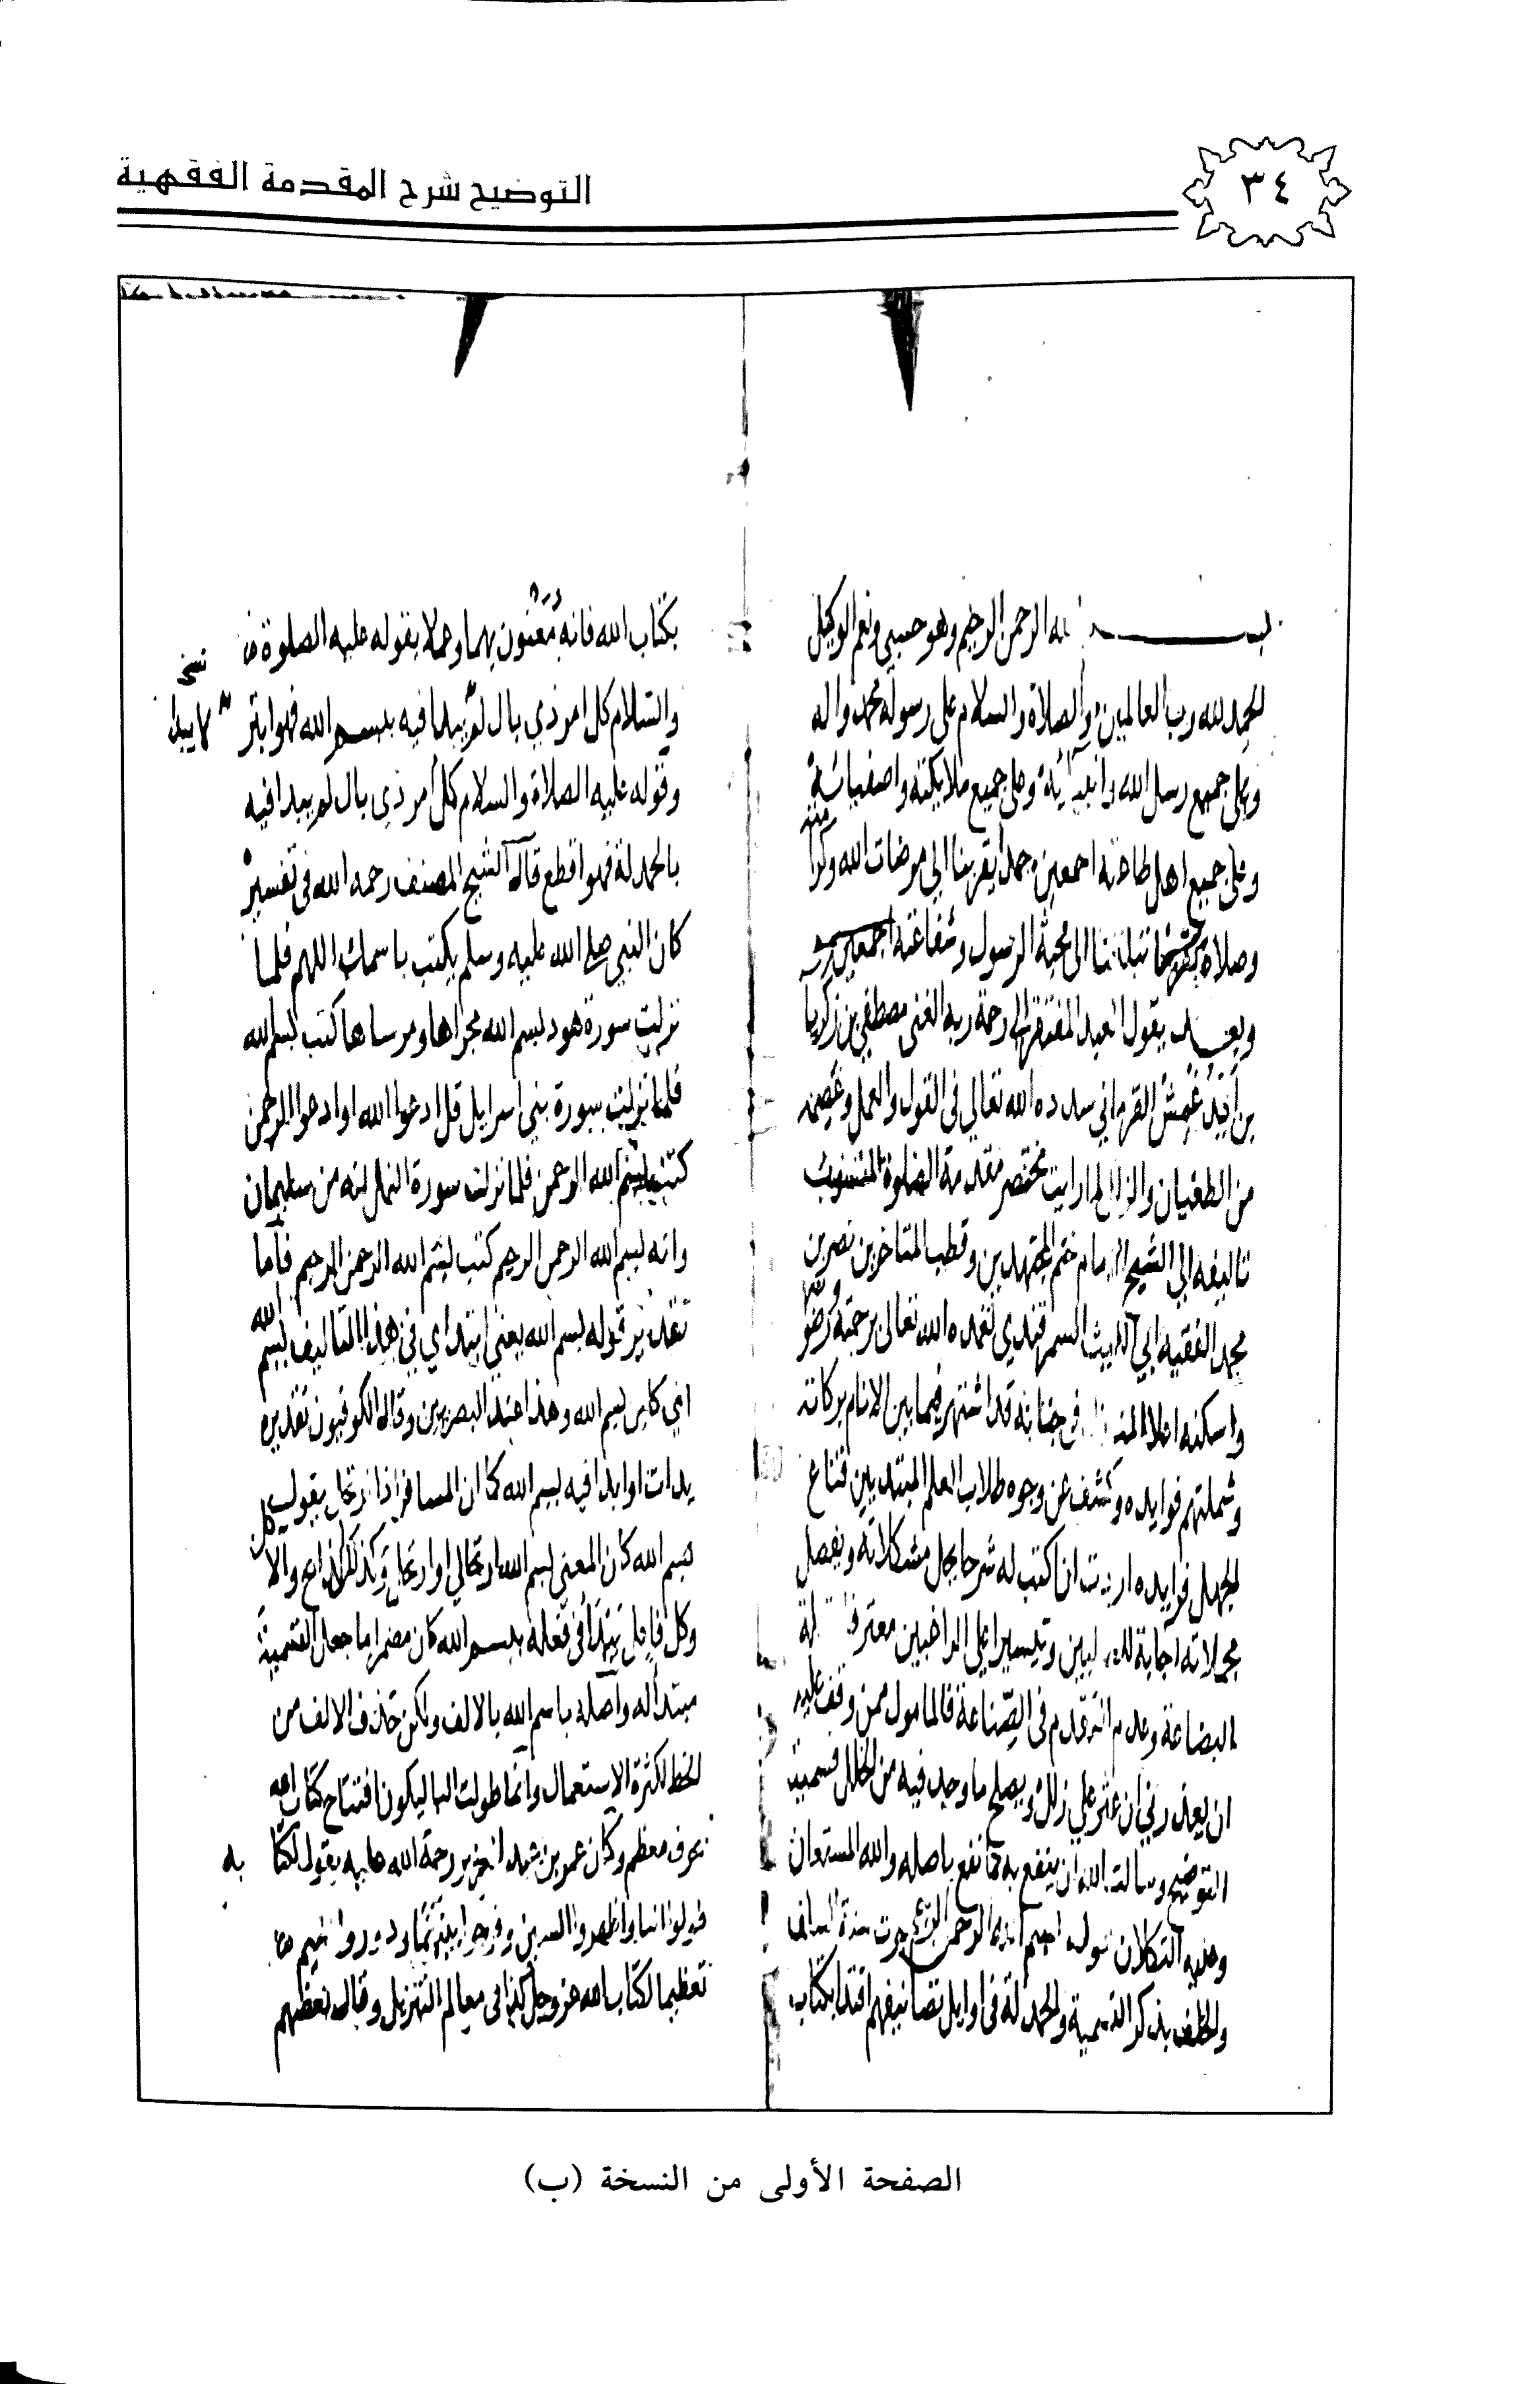 ٣٤
التوضيح شرح المقدمة الفقهية
الله الرحمن الرحيم وهو حسبي ونعم الوكيل
الحمد لله رب العالمين والصلاة والسلام على رسوله محمد واله
وعلى جميع رسل الله وانبيائه وعلى جميع ملايكته واصفيائه
وعلى جميع اهل طاعته اجمعين حمدا يقربنا الى مرضات الله
وصلاة تبلغنا الى محبة الرسول وشفاعته اجمعين
وبعد يقول العبد المفتقر الى رحمة ربه الغني مصطفى بن زكريا
بن ايدغمش القرماني سدده الله تعالى فى القول والعمل وعصمه
من الطغيان والزلل لما رايت مختصر مقدمة الصلوة المنسوب
تاليفه الي الشيخ الامام ختم المجتهدين وقطب المتاخرين نصر بن
محمد الفقيه ابي الليث السمرقندي تغمده الله تعالى برحمته
واسكنه اعلا في جنانه قد اشتهر فيما بين الانام بركاته
وشملتهم فوايده وكشف عن وجوه طلاب العلم المبتديين قناع
الجهل فوايده اردت ان اكتب له شرحا يحل مشكلاته ويفصل
مجملاته اجابة وتيسيرا على الراغبين معترفا
البضاعة وعدم التقدم فى الصناعة فالمامول ممن وقف عليه
ان يعذرني ان عثر علي زلل ويصلح ما وجد فيه من الخلل فسميته
التوضيح وسالت الله ان ينفع به كما نفع باصله والله المستعان
وعليه التكلان قوله بسم الله الرحمن الرحيم جرت سنة السلف
والخلف بذكر التسمية والحمدلة فى اوايل تصانيفهم اقتدا بكتاب
بكتاب الله فانه معنون بهما وعملا بقوله عليه الصلوة
والسلام كل امر ذي بال لم يبدا فيه ببسم الله فهو ابتر
نسخ
لا يبدا
وقوله عليه الصلاة والسلام كل امر ذي بال لم يبدا فيه
بالحمدلة فهو اقطع قال الشيخ المصنف رحمه الله فى تفسيره
كان النبي صلى الله عليه وسلم يكتب باسمك اللهم فلما
نزلت سورة هود بسم الله مجراها ومرساها كتب بسم الله
فلما نزلت سورة بني اسرايل قل ادعوا الله او ادعوا الرحمن
كتب بسم الله الرحمن فلما نزلت سورة النمل انه من سليمان
وانه بسم الله الرحمن الرحيم كتب بسم الله الرحمن الرحيم فاما
تقدير قوله بسم الله يعني ابتداي في هذا التاليف بسم الله
اي كاين بسم الله وهذا عند البصريين وقال الكوفيون تقديره
بدات او ابدا فيه بسم الله كما ان المسافر اذا ارتحل يقول
بسم الله كان المعنى بسم الله ارتحالي او ارتحل وكذلك الذابح والاكل
وكل فاعل يبتدأ فى فعله ببسم الله كان مضمرا ما جعل التسمية
مبتدأ له واصله باسم الله بالالف ولكن حذف الالف من
الخط لكثرة الاستعمال وانما طولت البا ليكون افتتاح كتاب الله
بحرف معظم وكان عمر بن عبد العزيز رحمة الله عليه يقول لكتابه
طولوا البا واظهروا السين وفرجوا بينهما ودوروا الميم
تعظيما لكتاب الله عز وجل كذا فى معالم التنزيل وقال بعضهم
الصفحة الأولى من النسخة (ب)